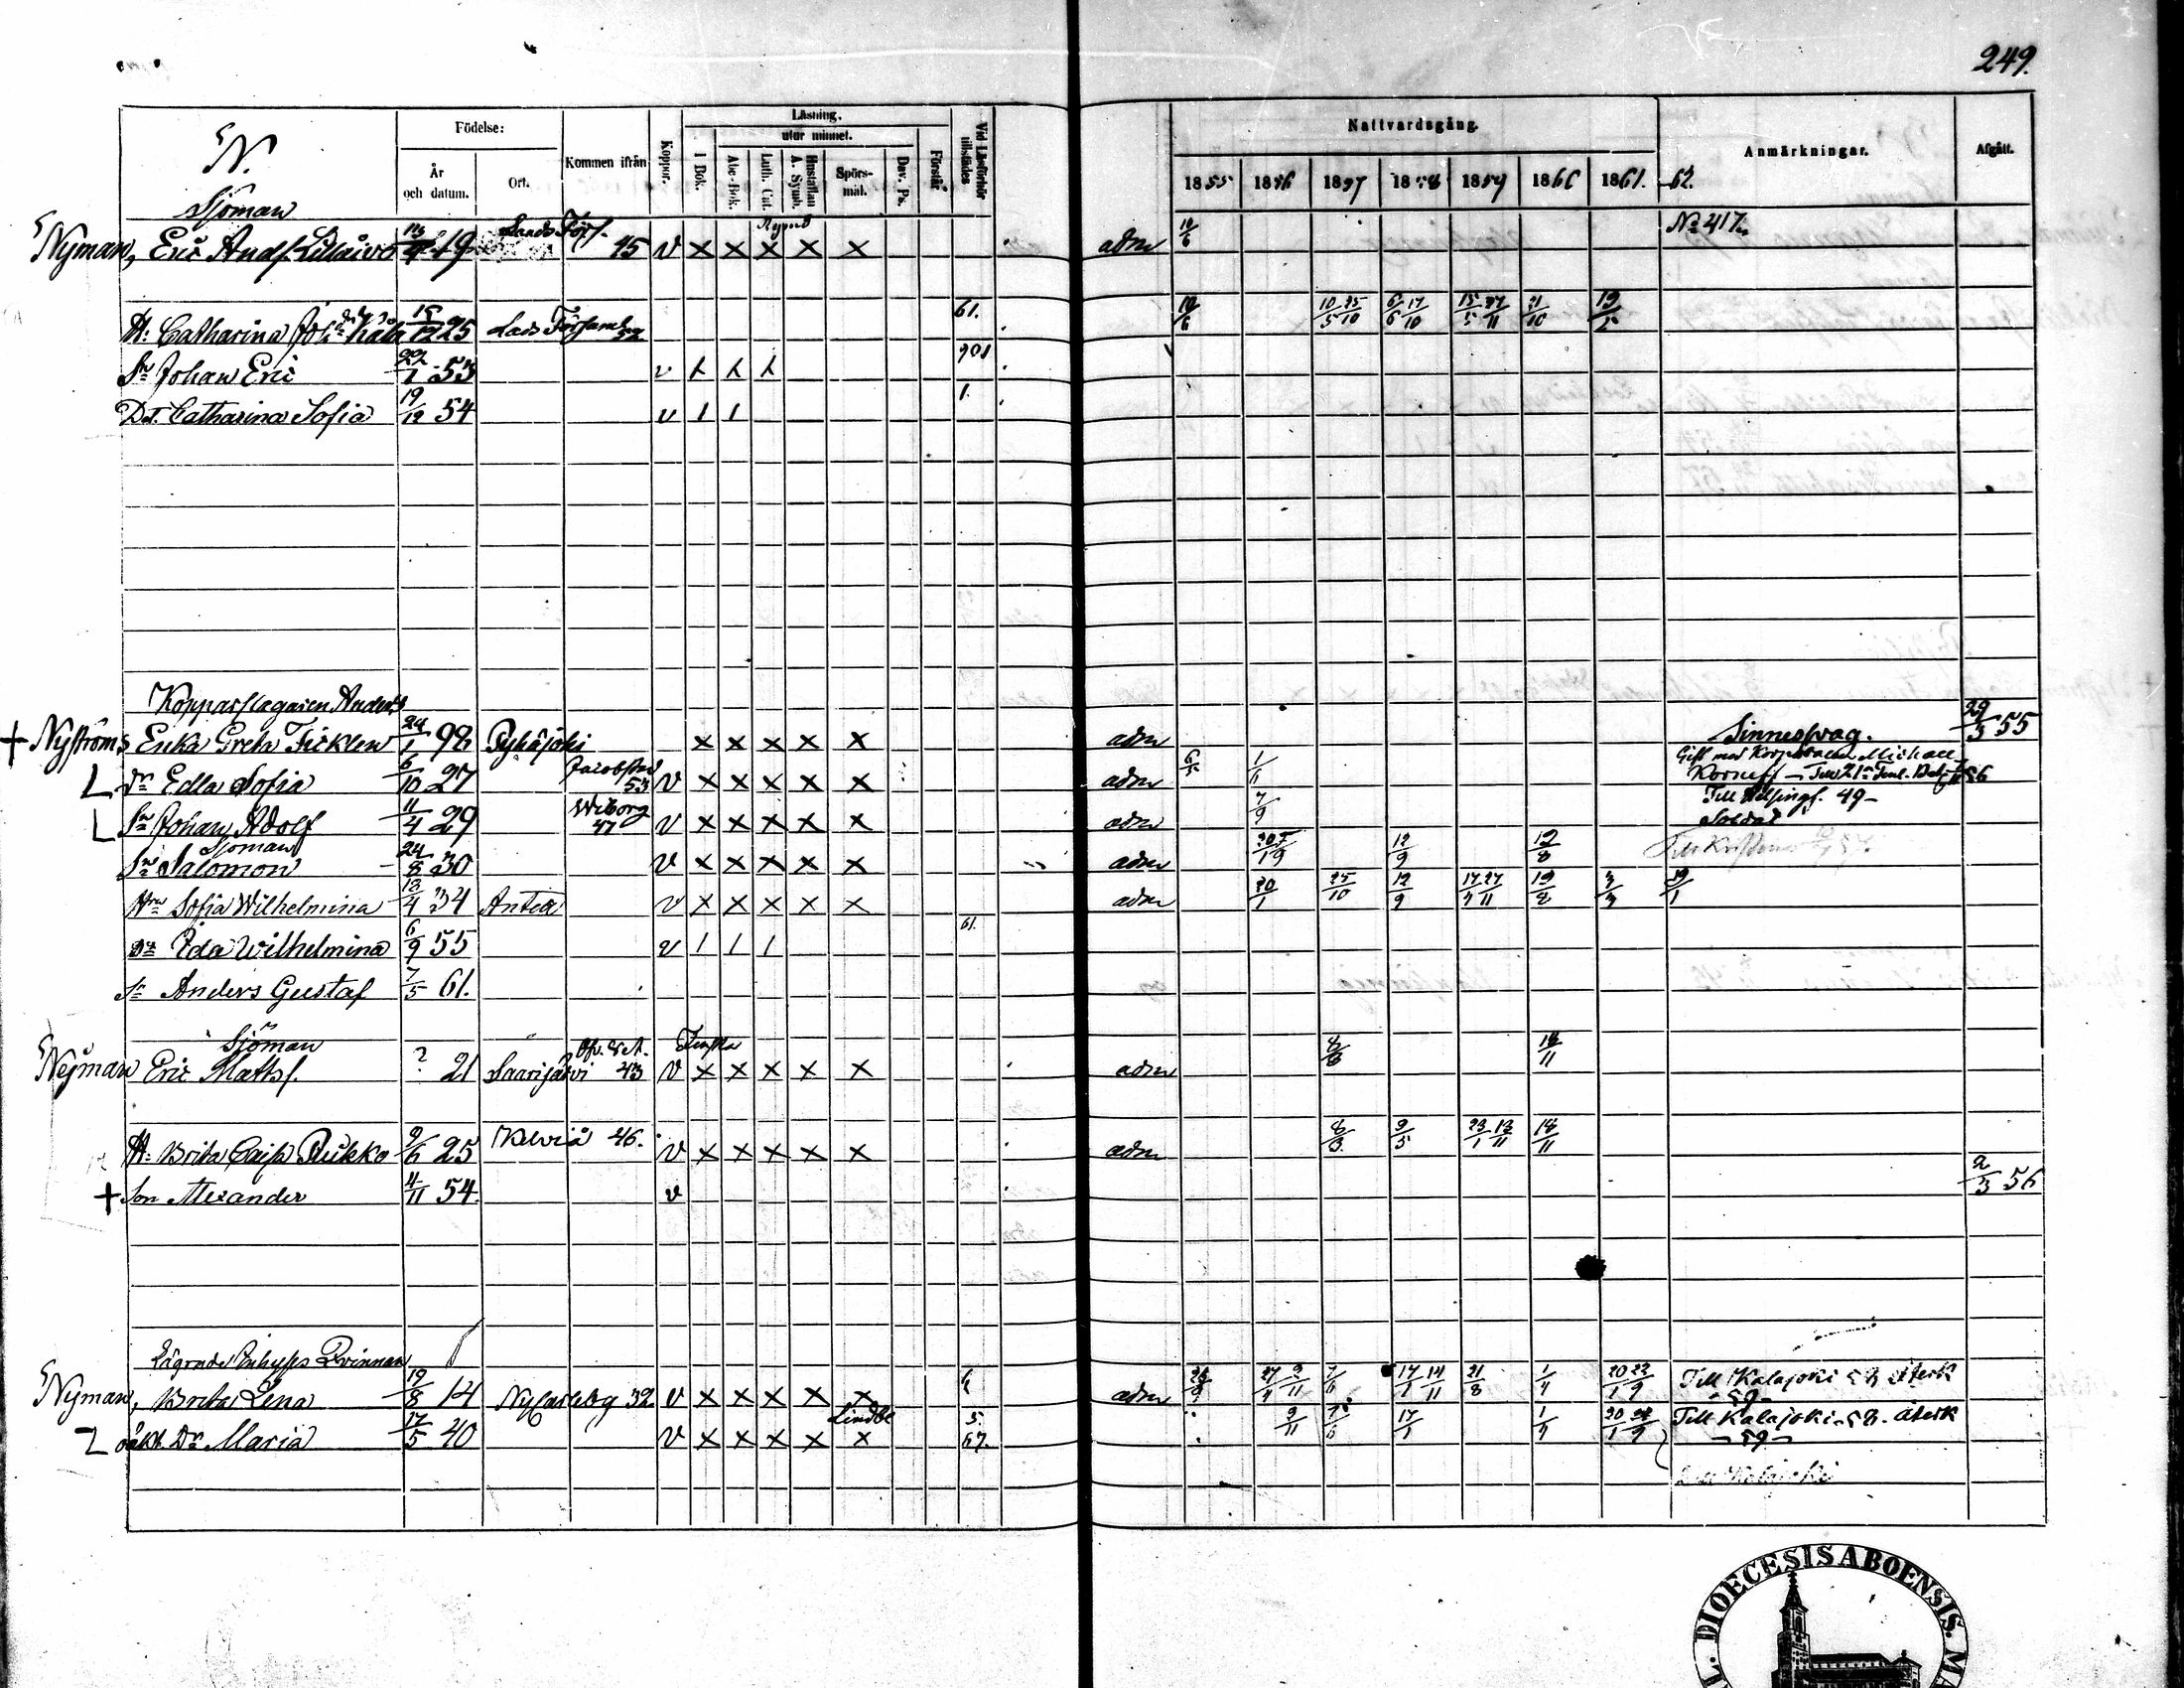 249.
N.
Födelse:
År och datum.
Ort.
Kommen ifrån
Koppor.
Läsning.
I Bok.
utur minnet.
Abc-Bok.
Luth. Cat.
Hustaflan A. Symb.
Spörs-mål.
Dav. Ps.
Förstår
Vid Läsförhör tillstädes
Nattvardsgång.
1855 1856 1857 1858 1859 1860 1861.
Anmärkningar.
62.
Afgått.
Sjöman
Nyman, Eric Andf. 19 Lands Förs. 45 v × × × × × adm 10/6 No 417.
H: Catharina 15/12 25 Lads Församl 52 61. 10/6 10/5 25/10 6/6 17/10 15/5 27/11 21/10 19/5
Sn Johan Eric 22/1 53 v
Dr. Catharina Sofia 19/12 54 v 1 1 1.
Kopparslagaren Anders
+ Nyströms Enka Greta Ficklen 24/1 98 Pyhäjoki × × × × × adm Sinnesswag. 29/3 55
Dr Edla Sofia 6/10 27 Jacobstad 53 v × × × × × adm 6/5 1/6 Gift med Korporalen Michael
Sn Johan Adolf 11/4 29 Wiborg 47 v × × × × × adm 7/9 Till Helsingf. 49-
Soldat
Sjöman
Sn Salomon 24/8 30 v × × × × × adm 12/9 12/8
Hru Sofia Wilhelmina 13/4 34 Antea v × × × × × adm 20/1 25/10 12/9 17/4 27/11 12/8 3/3 19/1
Dr Ida Wilhelmina 6/9 55 v 1 1 1 61.
Sn Anders Gustaf 7/5 61.
Sjöman
Nyman Eric Mattsf. ? 21 Saarijärvi 43 Finska v × × × × × adm 8/3 18/11
H: Brita Caisa Ruikko 9/6 25 Kelviå 46. v × × × × × adm 8/3 9/5 23/1 13/11 18/11
+ Son Alexander 4/11 54. v 2/3 56
Lägrade Inhyses Qvinnan
Nyman, Brita Lena 19/8 14 Nycarleby 32 v × × × × × adm 27/4 9/11 7/6 17/1 14/11 21/8 1/4 20/1 22/9 Till Kalajoki 58 återk
-59-
oäkt. Dr Maria 17/5 40 v × × × × × 67. 9/11 7/6 17/1 1/4 20/1 Till Kalajoki 58. återk
-59-
DIOECESIS ABOENSIS.